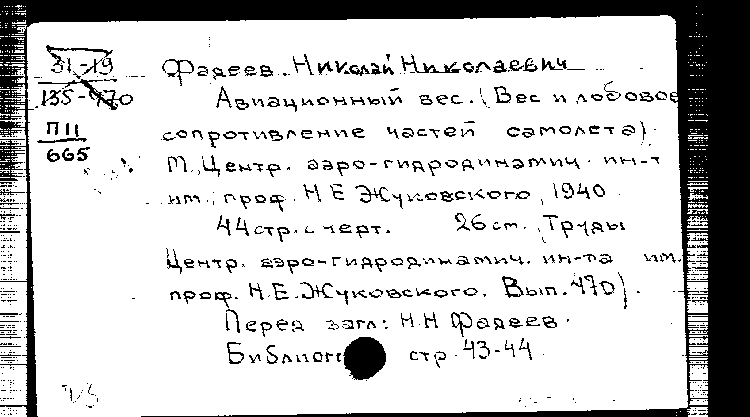 31-19
135-470
П11
665
Фадеев, Николай Николаевич
Авиационный вес. (Вес и лобовое
сопротивление частей самолета).
М., Центр. аэро-гидродинамич. ин-т
им. проф. Н.Е Жуковского, 1940.
44 стр. с черт. 26 см. (Труды
Центр. аэро-гидродинамич. ин-та им.
проф. Н.Е.Жуковского. Вып. 470).
Перед загл: Н.Н Фадеев.
стр. 43-44